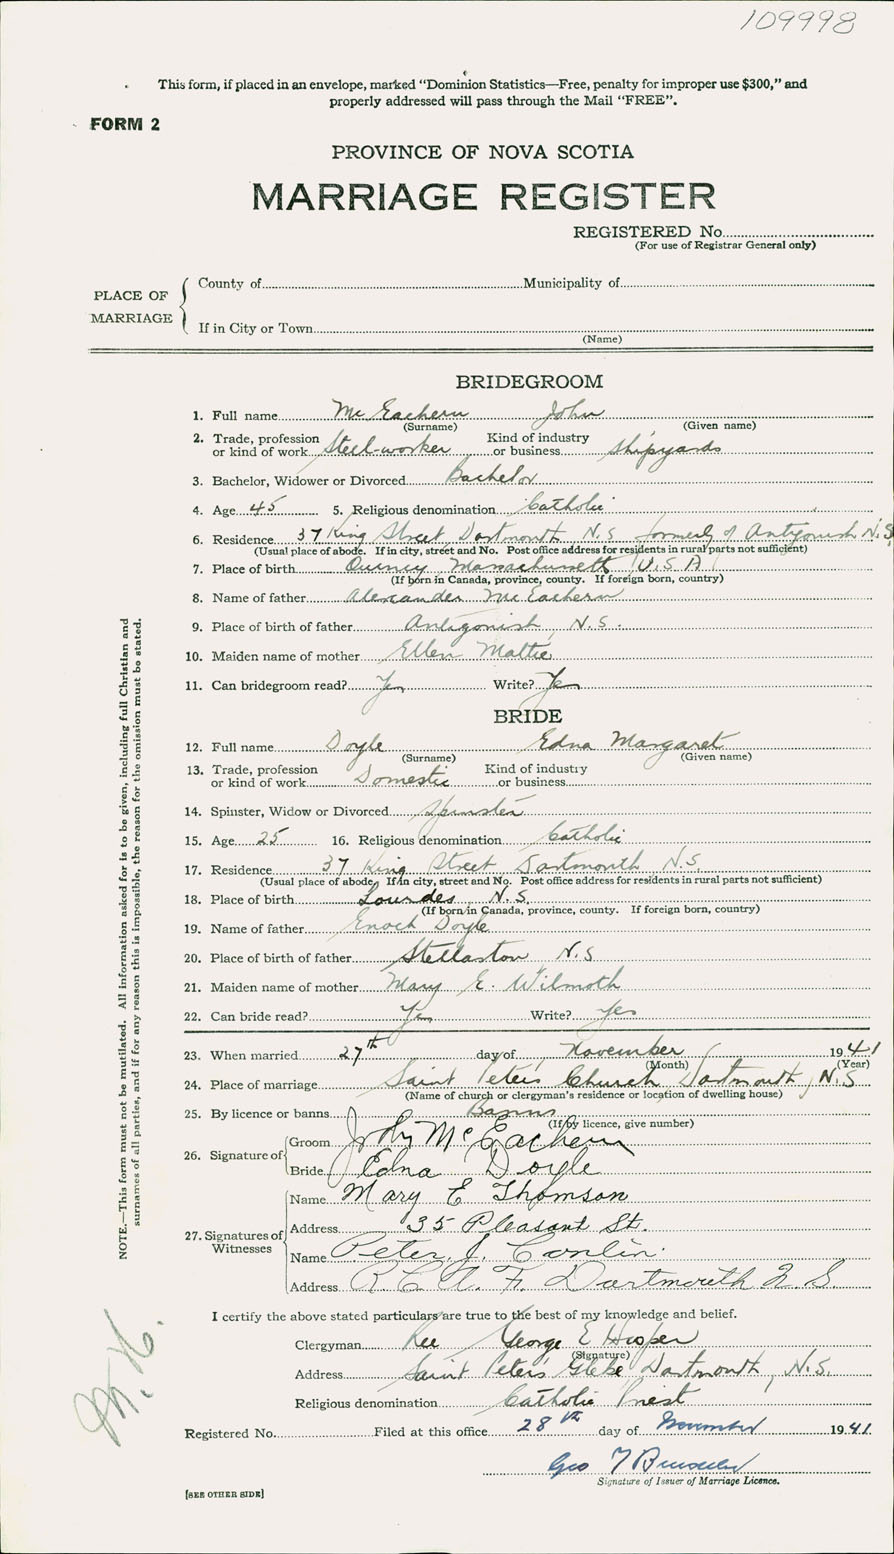 109998
This form, if placed in an envelope, marked “Dominion Statistics—Free, penalty for improper use $300,” and
properly addressed will pass through the Mail “FREE”.
FORM 2
PROVINCE OF NOVA SCOTIA
MARRIAGE REGISTER
REGISTERED No.
(For use of Registrar General only)
PLACE OF MARRIAGE
County of Municipality of
If in City or Town
(Name)
BRIDEGROOM
1. Full name Mc Eachern John
(Surname) (Given name)
2. Trade, profession or kind of work Steel-worker Kind of industry or business Shipyards
3. Bachelor, Widower or Divorced Bachelor
4. Age 45 5. Religious denomination Catholic
6. Residence 37 King Street, Dartmouth N.S. formerly of Antigonish N.S.
(Usual place of abode. If in city, street and No. Post office address for residents in rural parts not sufficient)
7. Place of birth Quincy Massachusetts (U.S.A)
(If born in Canada, province, county. If foreign born, country)
8. Name of father Alexander McEachern
9. Place of birth of father Antigonish, N.S.
10. Maiden name of mother Ellen Mattie
11. Can bridegroom read? Yes Write? Yes
BRIDE
12. Full name Doyle Edna Margaret
(Surname) (Given name)
13. Trade, profession or kind of work Domestic Kind of industry or business
14. Spinster, Widow or Divorced Spinster
15. Age 25 16. Religious denomination Catholic
17. Residence 37 King Street Dartmouth N.S.
(Usual place of abode. If in city, street and No. Post office address for residents in rural parts not sufficient)
18. Place of birth Lourdes, N.S.
(If born in Canada, province, county. If foreign born, country)
19. Name of father Enoch Doyle
20. Place of birth of father Stellarton N.S
21. Maiden name of mother Mary E. Wilmoth
22. Can bride read? Yes Write? Yes
23. When married 27th day of November 1941
(Month) (Year)
24. Place of marriage Saint Peter's Church, Dartmouth, N.S
(Name of church or clergyman's residence or location of dwelling house)
25. By licence or banns Banns
(If by licence, give number)
26. Signature of
Groom John McEachern
Bride Edna Doyle
27. Signatures of Witnesses
Name Mary E Thomson
Address 35 Pleasant St.
Name Peter J. Conlin
Address R.C.A.F. Dartmouth N.S.
I certify the above stated particulars are true to the best of my knowledge and belief.
Clergyman Rev George E Hooper
(Signature)
Address Saint Peter's Glebe Dartmouth, N.S.
Religious denomination Catholic Priest
Registered No. Filed at this office 28th day of November 1941
Geo
Signature of Issuer of Marriage Licence.
[SEE OTHER SIDE]
NOTE.—This form must not be mutilated. All information asked for is to be given, including full Christian and
surnames of all parties, and if for any reason this is impossible, the reason for the omission must be stated.